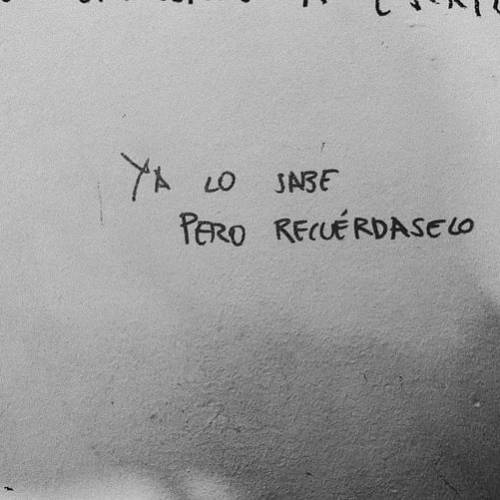 YA LO SABE
PERO RECUÉRDASELO